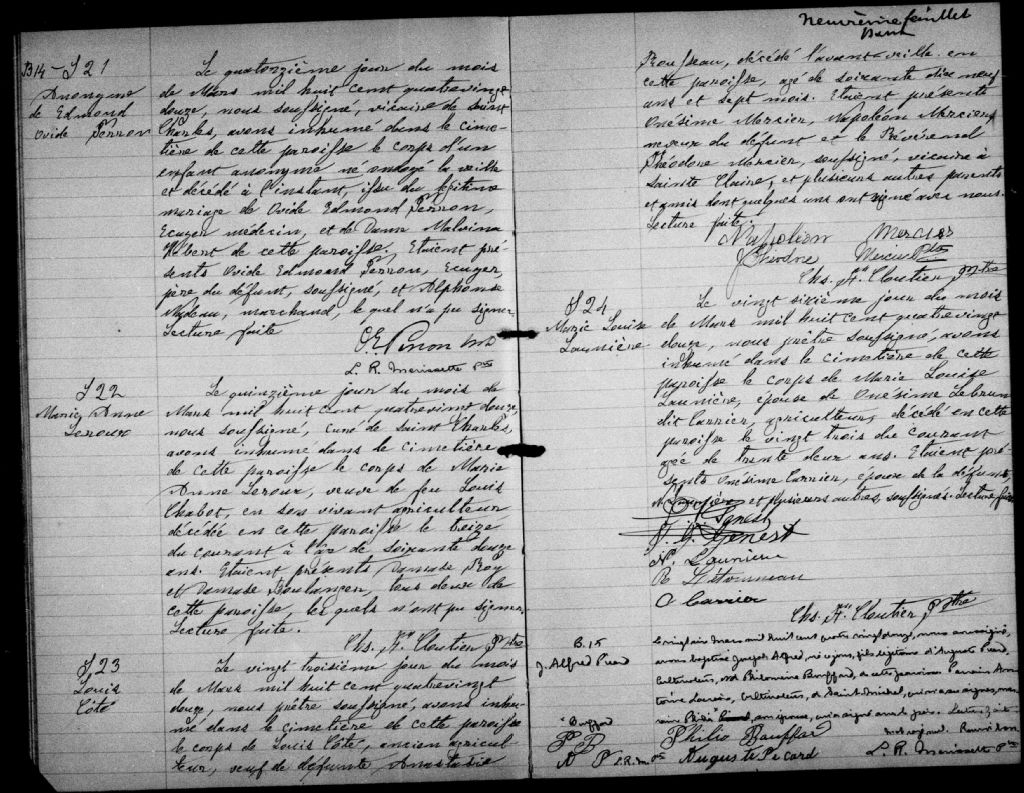 B14 – S 21
Anonyme
de Edmond
Ovide Perron
Le quatorzième jour du mois
de Mars mil huit cent quatrevingt
douze, nous soussigné, vicaire de Saint
Charles, avons inhumé dans le cime-
tière de cette paroisse le corps d'un
enfant anonyme né ondoyé la veille
et décédé à l'instant, issu du légitime
mariage de Ovide Edmond Perron,
Ecuyer médecin, et de Dame Malvina
Hébert de cette paroisse. Etaient pré-
sents Ovide Edmond Perron, Ecuyer,
père du défunt, soussigné, et Alphonse
Nadeau, marchand, le quel n'a pu signer.
Lecture faite
O E Perron
L. R. Ptre
S 22
Marie Anne
Leroux
Le quinzième jour du mois de
Mars mil huit cent quatrevingt douze,
nous soussigné, curé de Saint Charles,
avons inhumé dans le cimetière
de cette paroisse le corps de Marie
Anne Leroux, veuve de feu Louis
Chabot, en son vivant agriculteur
décédée en cette paroisse le treize
du courant à l'âge de soixante douze
ans. Etaient présents Damase Roy
et Damase Boulanger tous deux de
cette paroisse, les quels n'ont pu signer.
Lecture faite.
Chs. Cloutier Ptre
S 23
Louis
Côté
Le vingt troisième jour du mois
de Mars mil huit cent quatrevingt
douze, nous prêtre soussigné, avons inhu-
mé dans le cimetière de cette paroisse
le corps de Louis Côté, ancien agricul
teur, veuf de défunte Anastasie
Neuvième feuillet
Rousseau, décédé l'avant-veille en
cette paroisse, agé de soixante dix neuf
ans et sept mois. Etaient présents
Onésime Mercier, Napoléon Mercier,
neveux du défunt et le Révérend
Théodore Mercier, soussigné, vicaire à
Sainte Claire, et plusieurs autres parents
et amis dont quelques uns ont signé avec nous.
Lecture faite.
Napoléon Mercier
Mercier Ptre
Chs. Cloutier Ptre
S 24
Marie Louise
Launière
Le vingt sixième jour du mois
de Mars mil huit cent quatrevingt
douze, nous prêtre soussigné, avons
inhumé dans le cimetière de cette
paroisse le corps de Marie Louise
Launière, épouse de Onésime Lebrun
dit Carrier, agriculteur, décédé en cette
paroisse le vingt trois du courant
agée de trente deux ans. Etaient pré-
sents Onésime Carrier, époux de la défunte,
et plusieurs autres, soussignés. Lecture faite
Genest
Genest
N. Launiere
R Létourneau
O Carrier
Chs. Cloutier Ptre
B. 15
J. Alfred Picard
Le vingt six mars mil huit cent quatre vingt douze, nous soussigné,
avons baptisé Joseph Alfred, né, fils légitime d'Auguste Picard,
Cultivateur, et de Philomène Bouffard, de cette paroisse. Parrain
Cultivateur, de Saint Michel,
Lecture faite
Bouffard
P B
A P L.R.M.
Philis Bouffar
Auguste Picard
L. R. Ptre